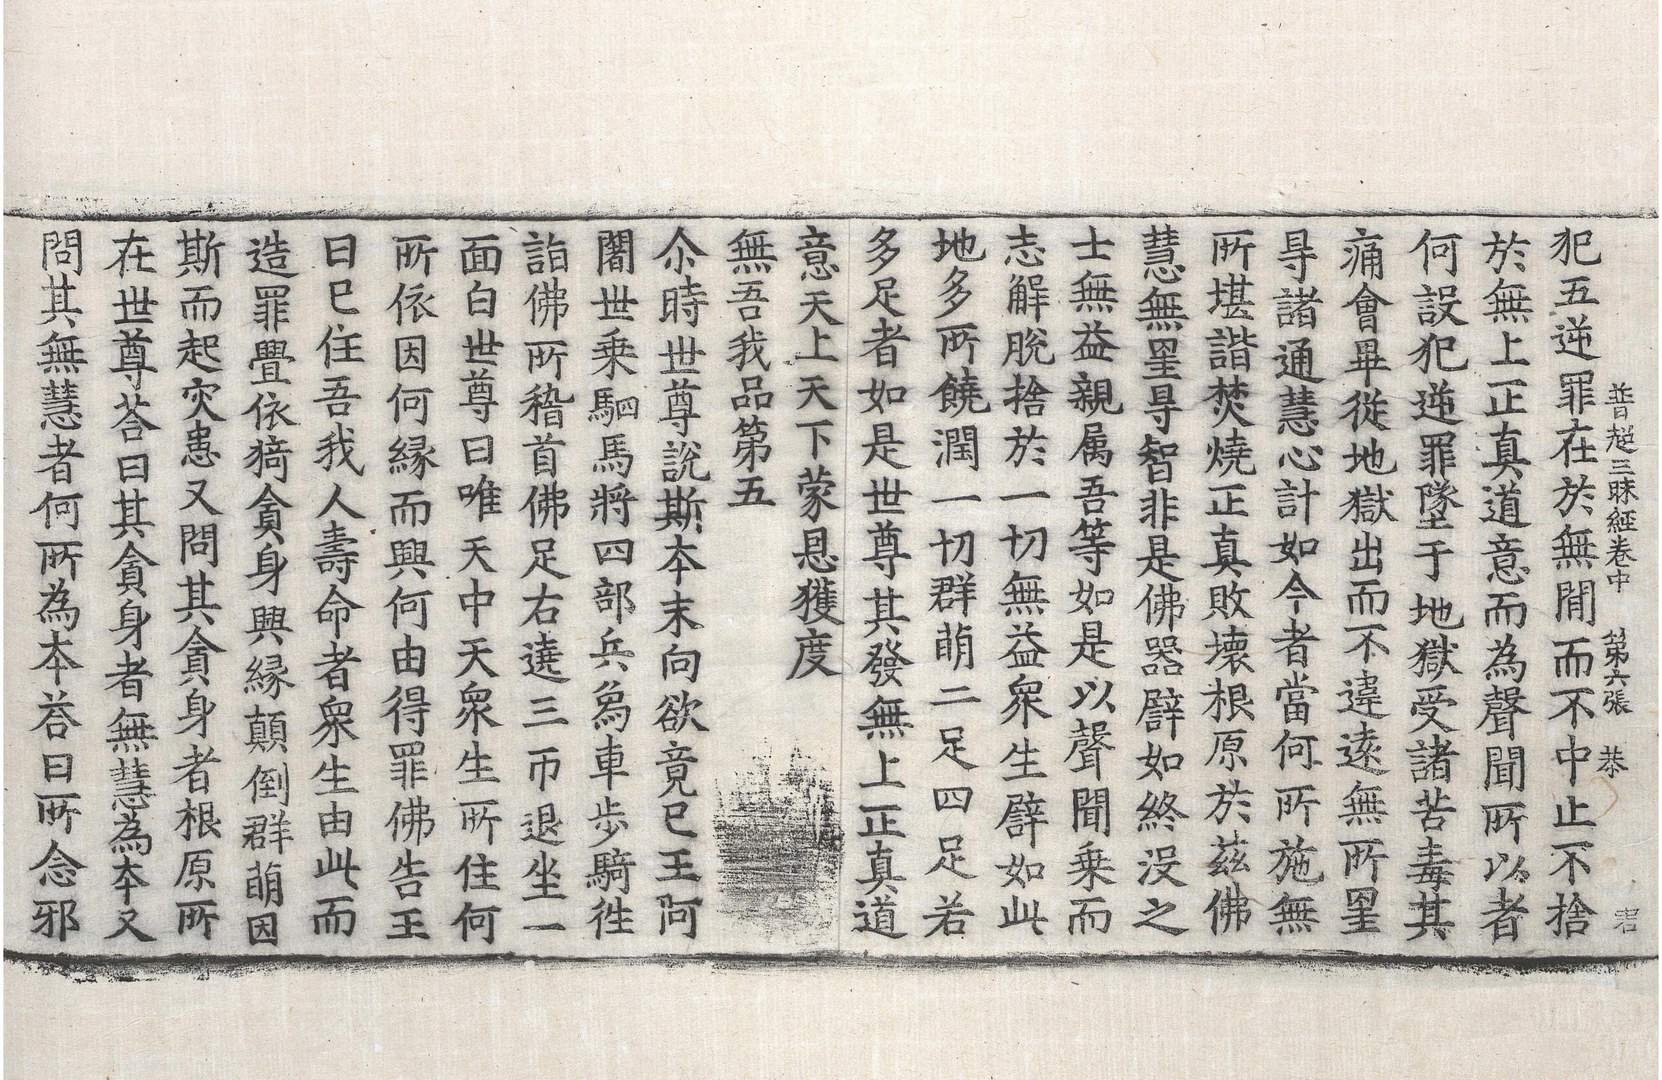 普超三昧經卷中　第六張　恭
犯五逆罪在於無閒而不中止不捨
於無上正真道意而為聲聞所以者
何設犯逆罪墜于地獄受諸苦毒其
痛會畢從地獄出而不違遠無所罣
㝵諸通慧心計如今者當何所施無
所堪諧焚燒正真敗壞根原於茲佛
慧無罣㝵智非是佛器譬如終没之
士無益親属吾等如是以聲聞乗而
志解脫捨於一切無益衆生譬如此
地多所饒潤一切群萌二足四足若
多足者如是世尊其發無上正真道
意天上天下蒙恩獲度
無吾我品第五
尒時世尊說斯本末向欲竟已王阿
闍世乗駟馬將四部兵象車歩騎徃
詣佛所稽首佛足右遶三帀退坐一
面白世尊曰唯天中天衆生所住何
所依因何縁而興何由得罪佛告王
曰已住吾我人壽命者衆生由此而
造罪舋依猗貪身興縁顛倒群萌因
斯而起灾患又問其貪身者根原所
在世尊荅曰其貪身者無慧為本又
問其無慧者何所為本荅曰所念邪